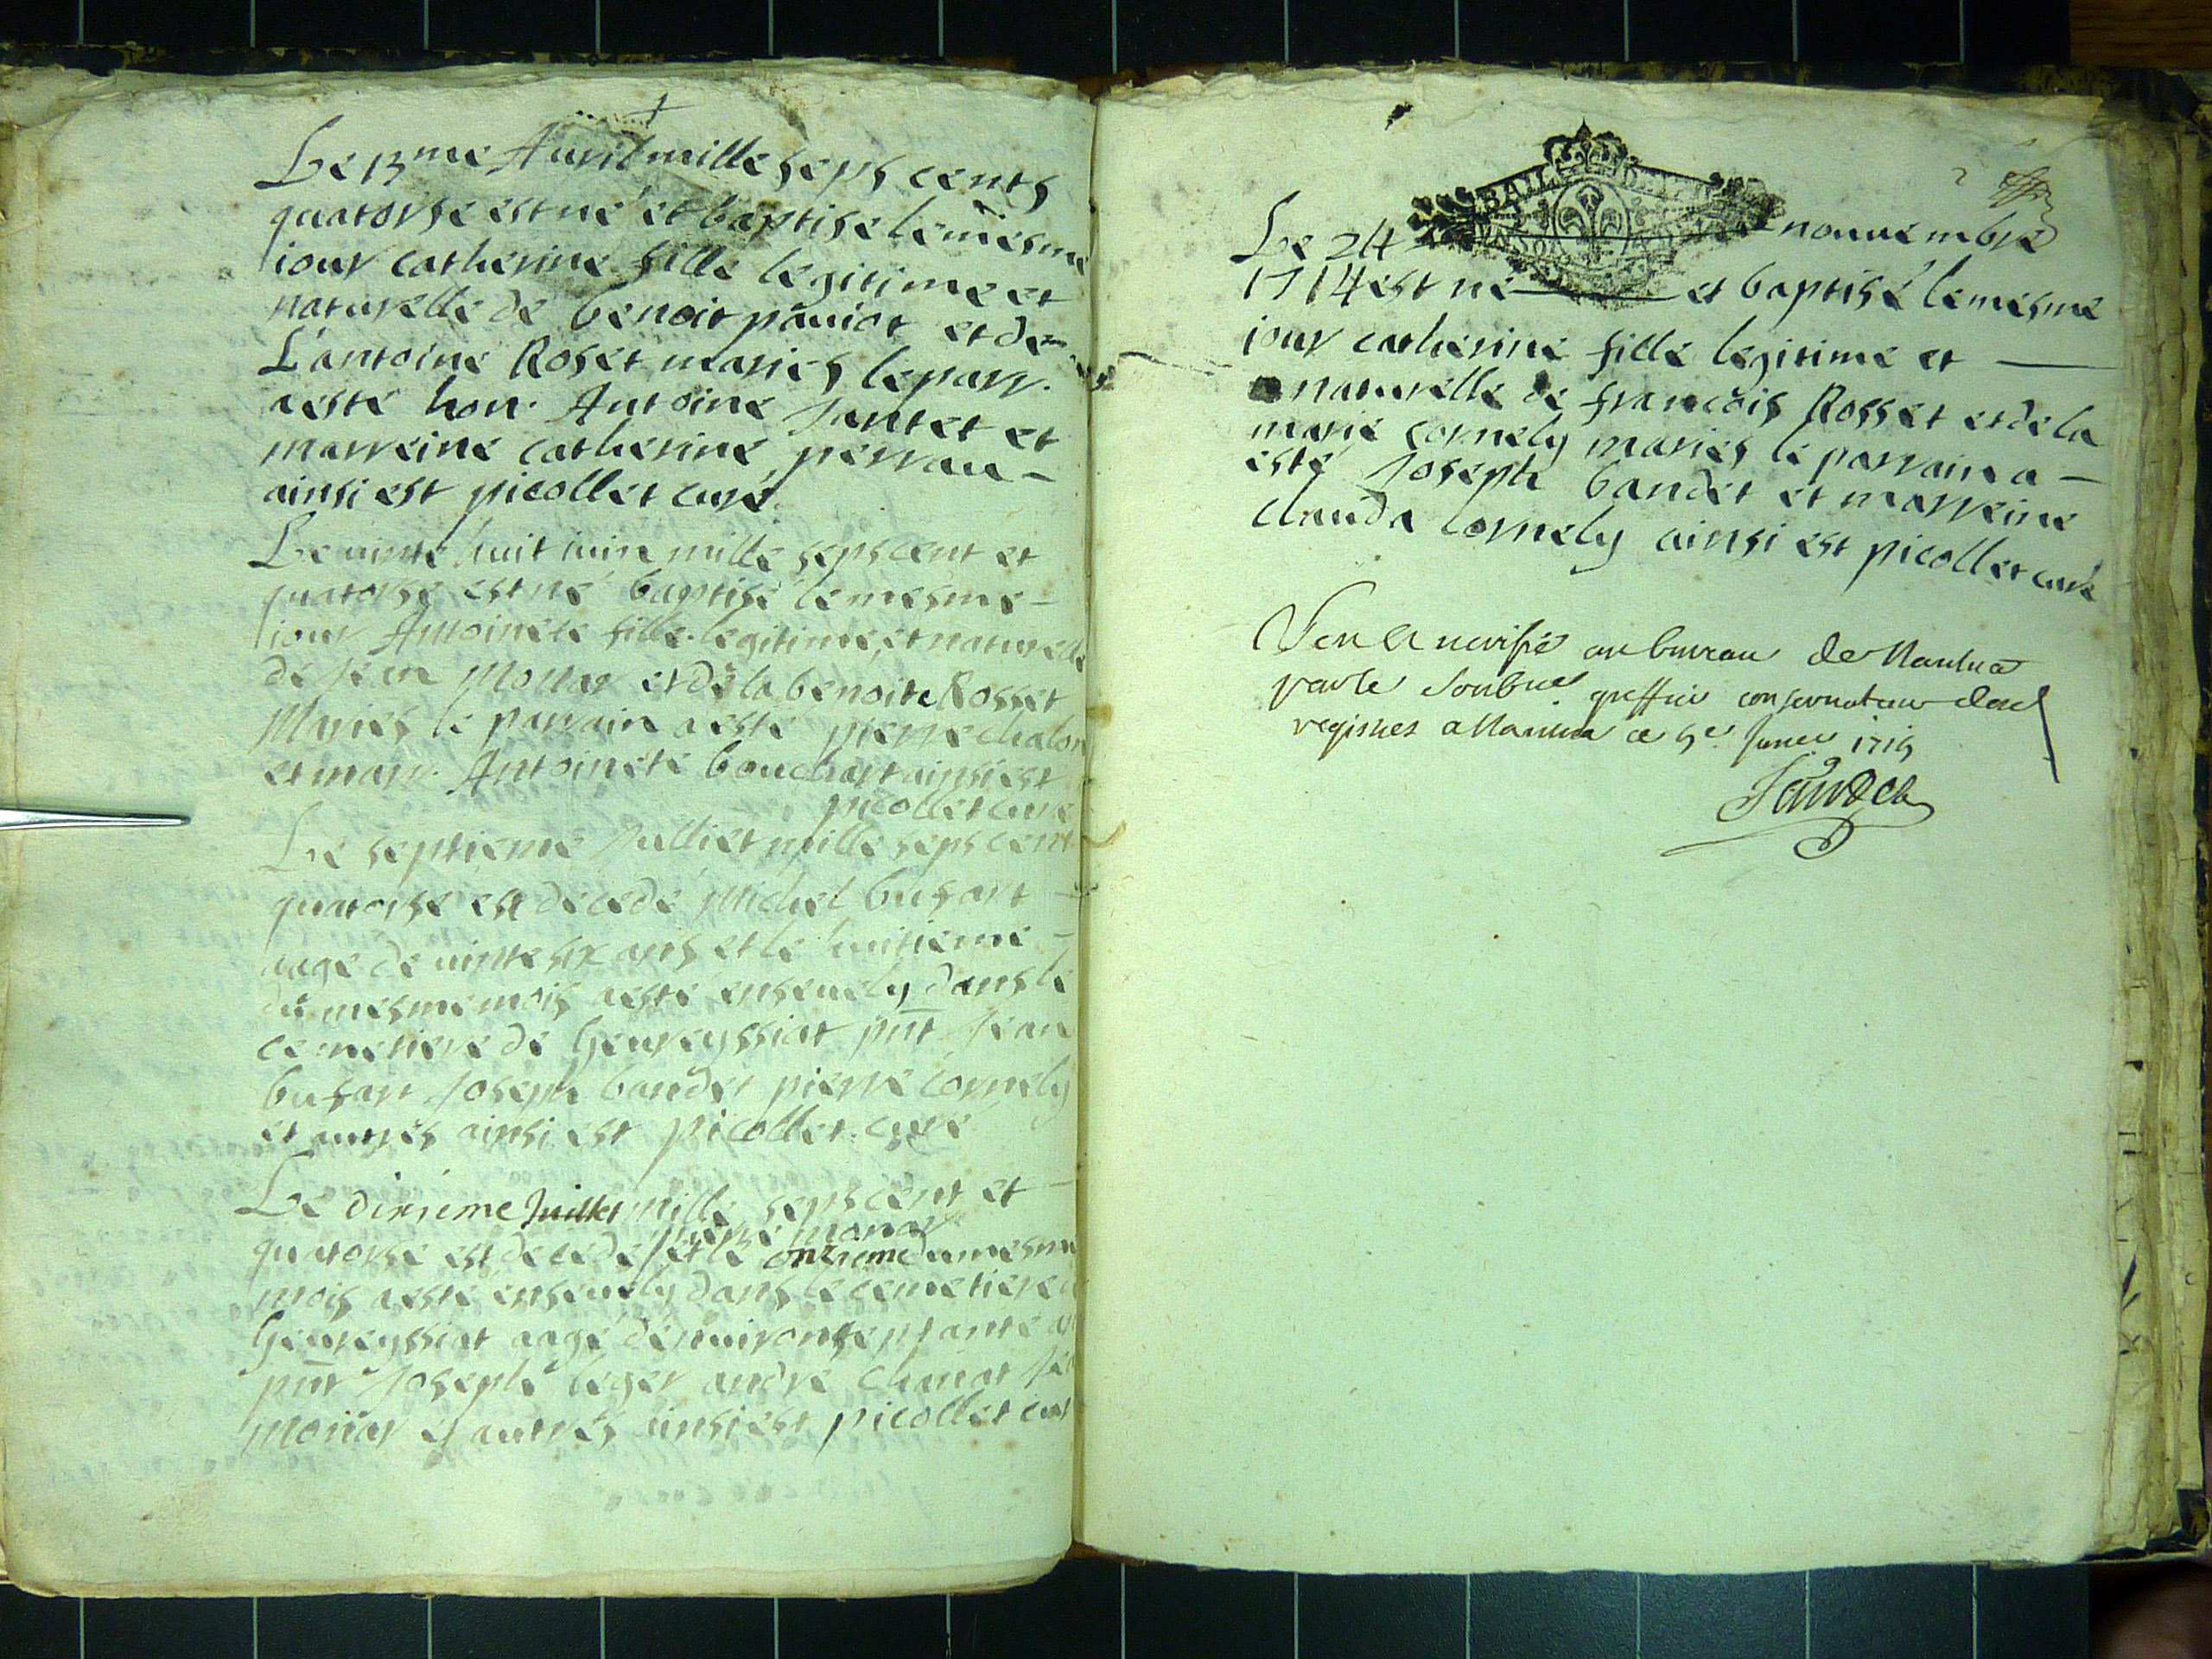 Le 13me Auril mille seps cents
quatorse est né et baptise le mesme
iour catherine fille legitime et
naturelle de benoit pauiot et de
L'antoine Roset mariés le parr.
a esté hon. Antoine Jantet et
marreine catherine perrau
ainsi est picollet curé
Le uinte huit iuin mille seps cent et
quatorse est né baptisé le mesme
iour Antoinete fille legitime et naturelle
de Jean Monar et de la benoite Rosset
Mariés le parrain a esté pierre chalon
et marr. Antoinete bouchart ainsi est
picollet curé
Le septieme Julliet mille seps cent
quatorse est decedé Michel busart
aage de uinte six ans et le huitieme
du mesme mois a esté enseuely dans le
cemetiere de Geureyssiat pnt Jean
busart Joseph bandet pierre cornely
et autres ainsi est picollet curé
Le dixieme Juillet mille seps cent et
pierre monar
quatorse est decedé et le onzieme du mesme
mois a esté enseuely dans le cemetiere
Geureyssiat aagé d'enuiron septante
pnt Joseph leger andre chanat
monar et autres ainsi est picollet curé
BAIL
Le 24 nouuembre
1714 est né et baptisé le mesme
iour catherine fille legitime et
naturelle de françois Rosset et de la
marie cornely mariés le parrain a
esté Joseph bandet et marreine
clauda cornely ainsi est picollet curé
Veu et verifié au bureau de Nantua
par le soubné greffier conservateur des
registres a Nantua ce 5e Janer 1715